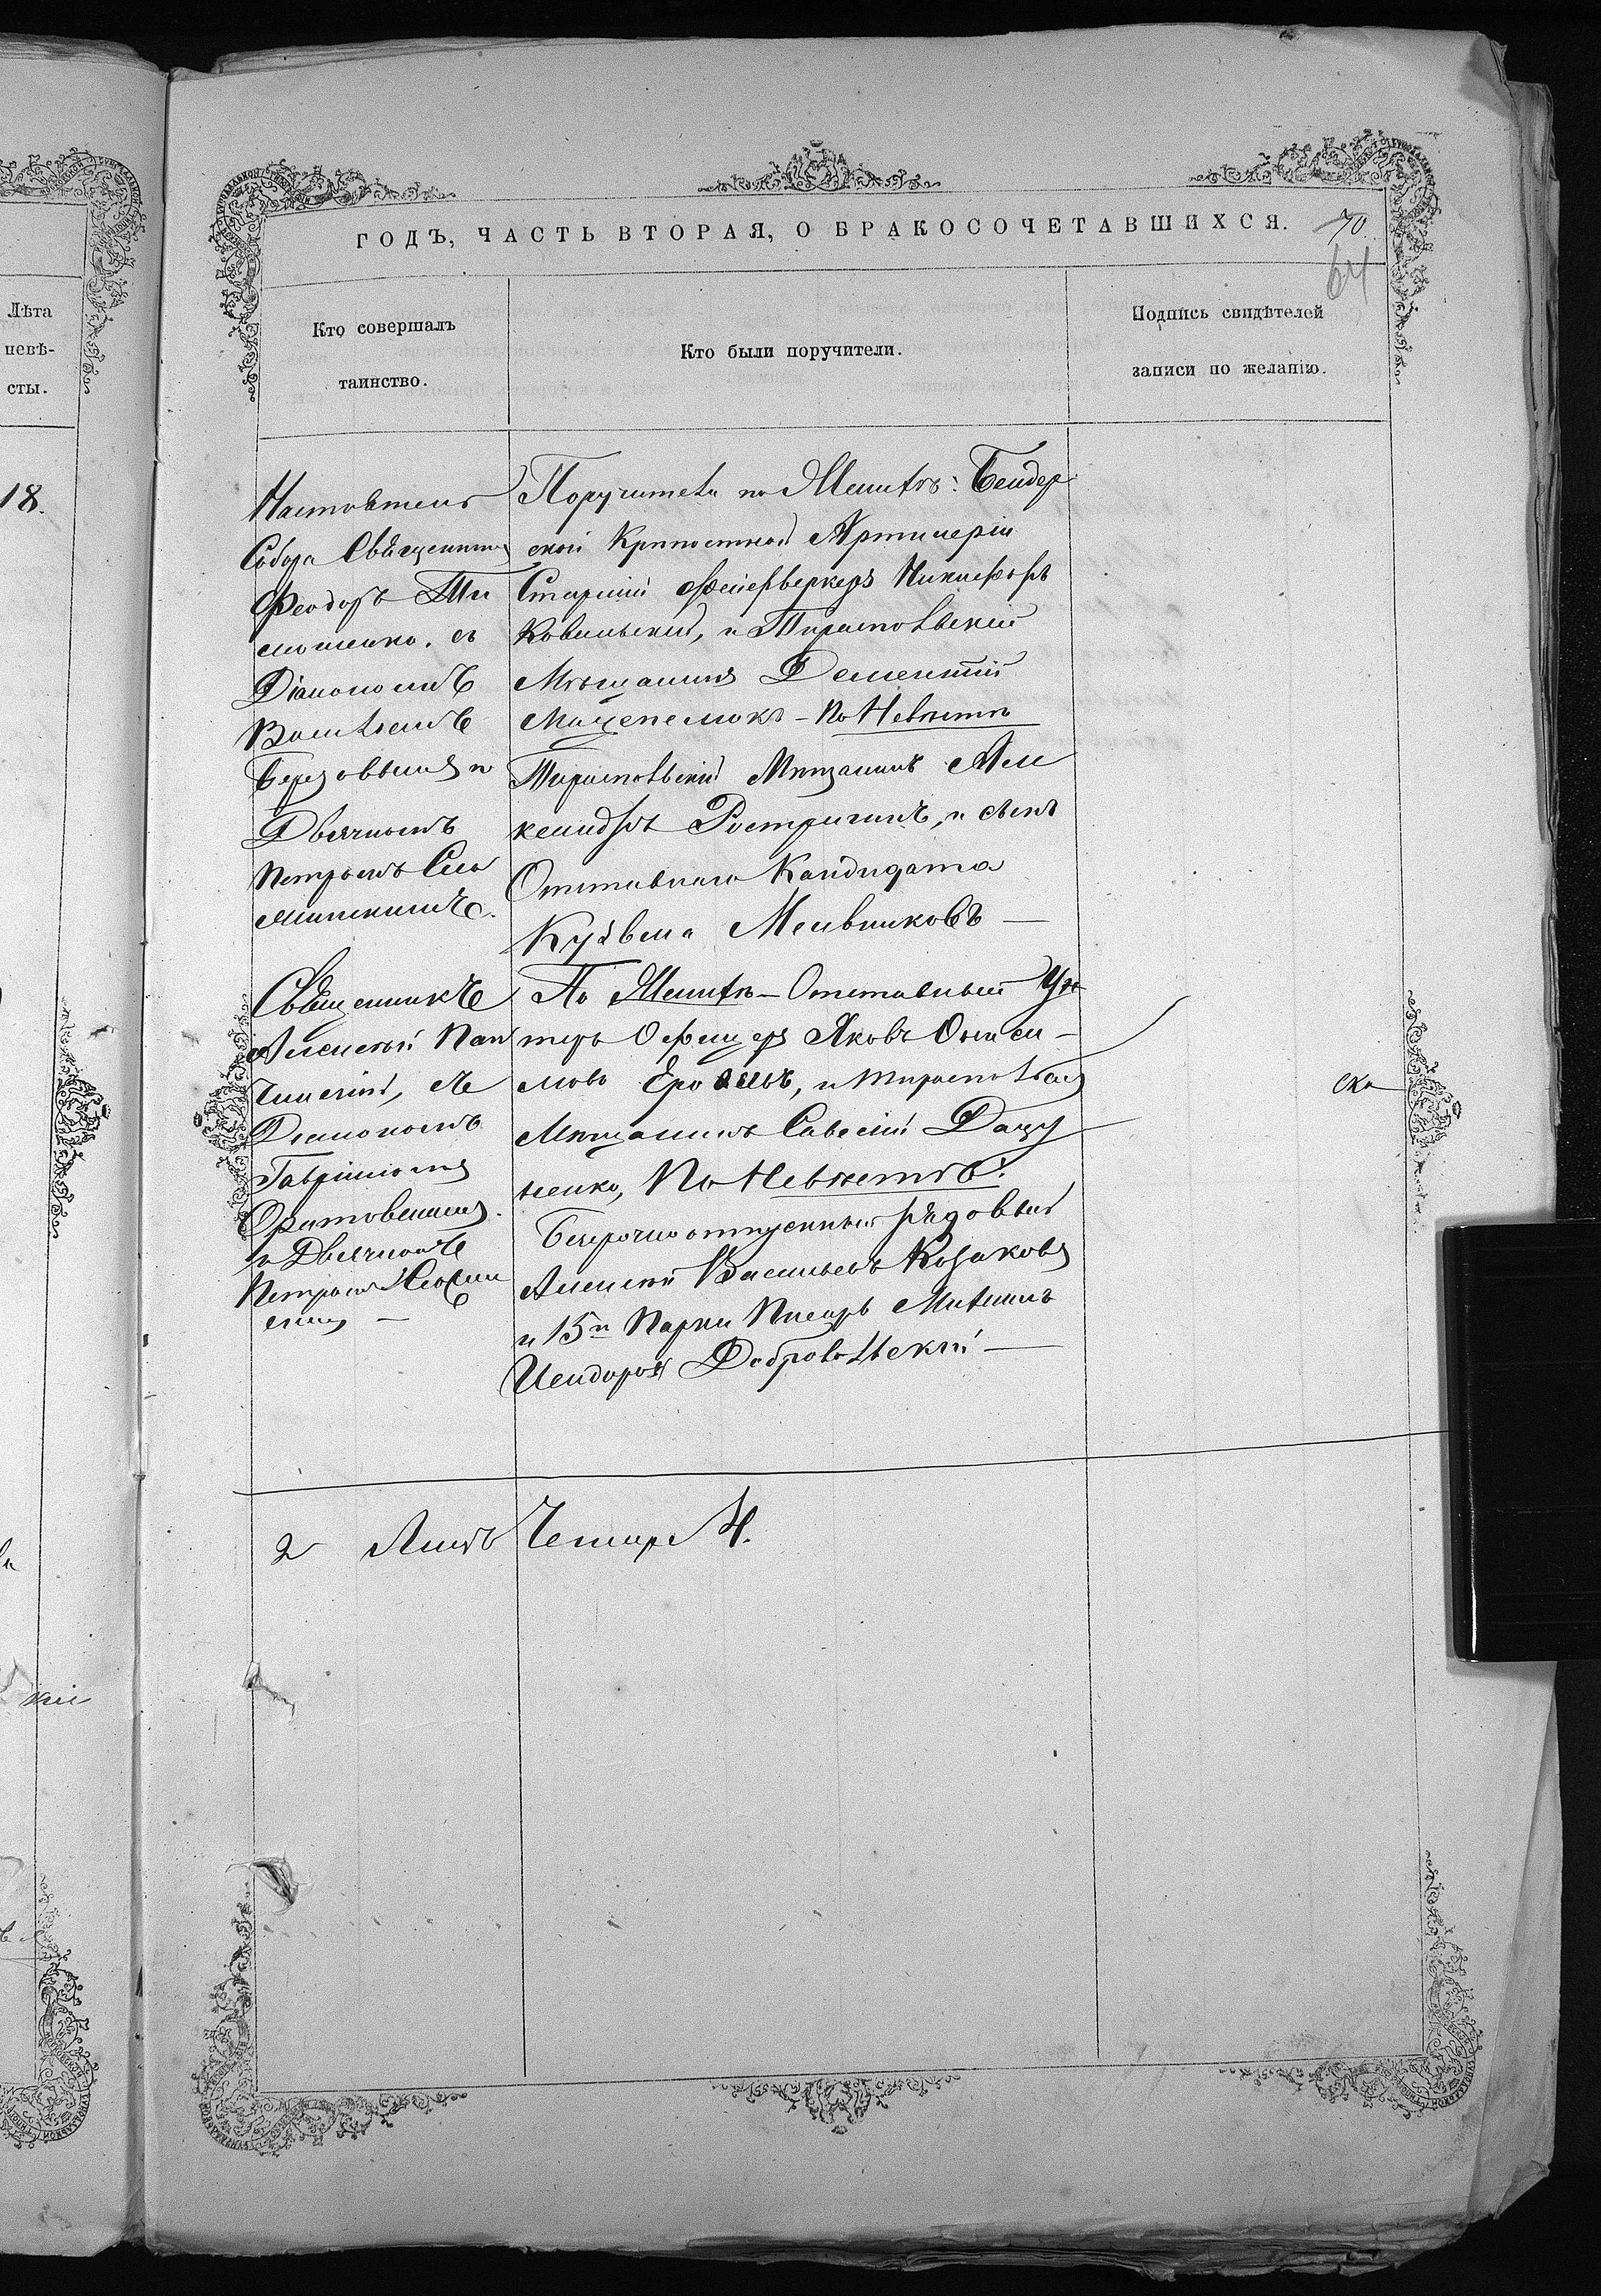 ГОДЪ, ЧАСТЬ ВТОРАЯ, О БРАКОСОЧЕТАВШИХСЯ.
70
64
Лѣта
невѣ-
сты.
18.
Кто совершалъ
таинство.
Кто были поручители.
Подпись свидѣтелей
записи по желанію.
Настоятель
Собора Священникъ
Феодоръ Ти
мошенко, съ
Діакономъ
Васильемъ
Березовскимъ и
Дьячкомъ
Петромъ
Поручители по Женихѣ: Бендер
ской Крѣпостной Артилеріи
Старшій Фейерверкеръ Никифоръ
Ковальскій, и Тираспольскій
Мѣщанинъ Дементій
Мацепелюкъ – По Невѣстѣ
Тираспольскій Мѣщанинъ Але
ксандръ Ростригинъ, и сынъ
Отставнаго Кандидата
Кузьма Мельниковъ —
Священникъ
Алексѣй
съ
Діакономъ
Гавріиломъ
и Дьячкомъ
Петромъ
По Женихѣ – Отставный Ун
теръ Офицеръ Яковъ Ониси-
мовъ и Тираспольскій
Мѣщанинъ Савелій Дацу
ненко, По Невѣстѣ:
Безсрочноотпускный рядовый
Алексѣй Васильевъ Козаковъ
и 15й Парки Писарь
Исидоровъ Добровольскій —
ска
кій
2 Актъ Четыре 4.